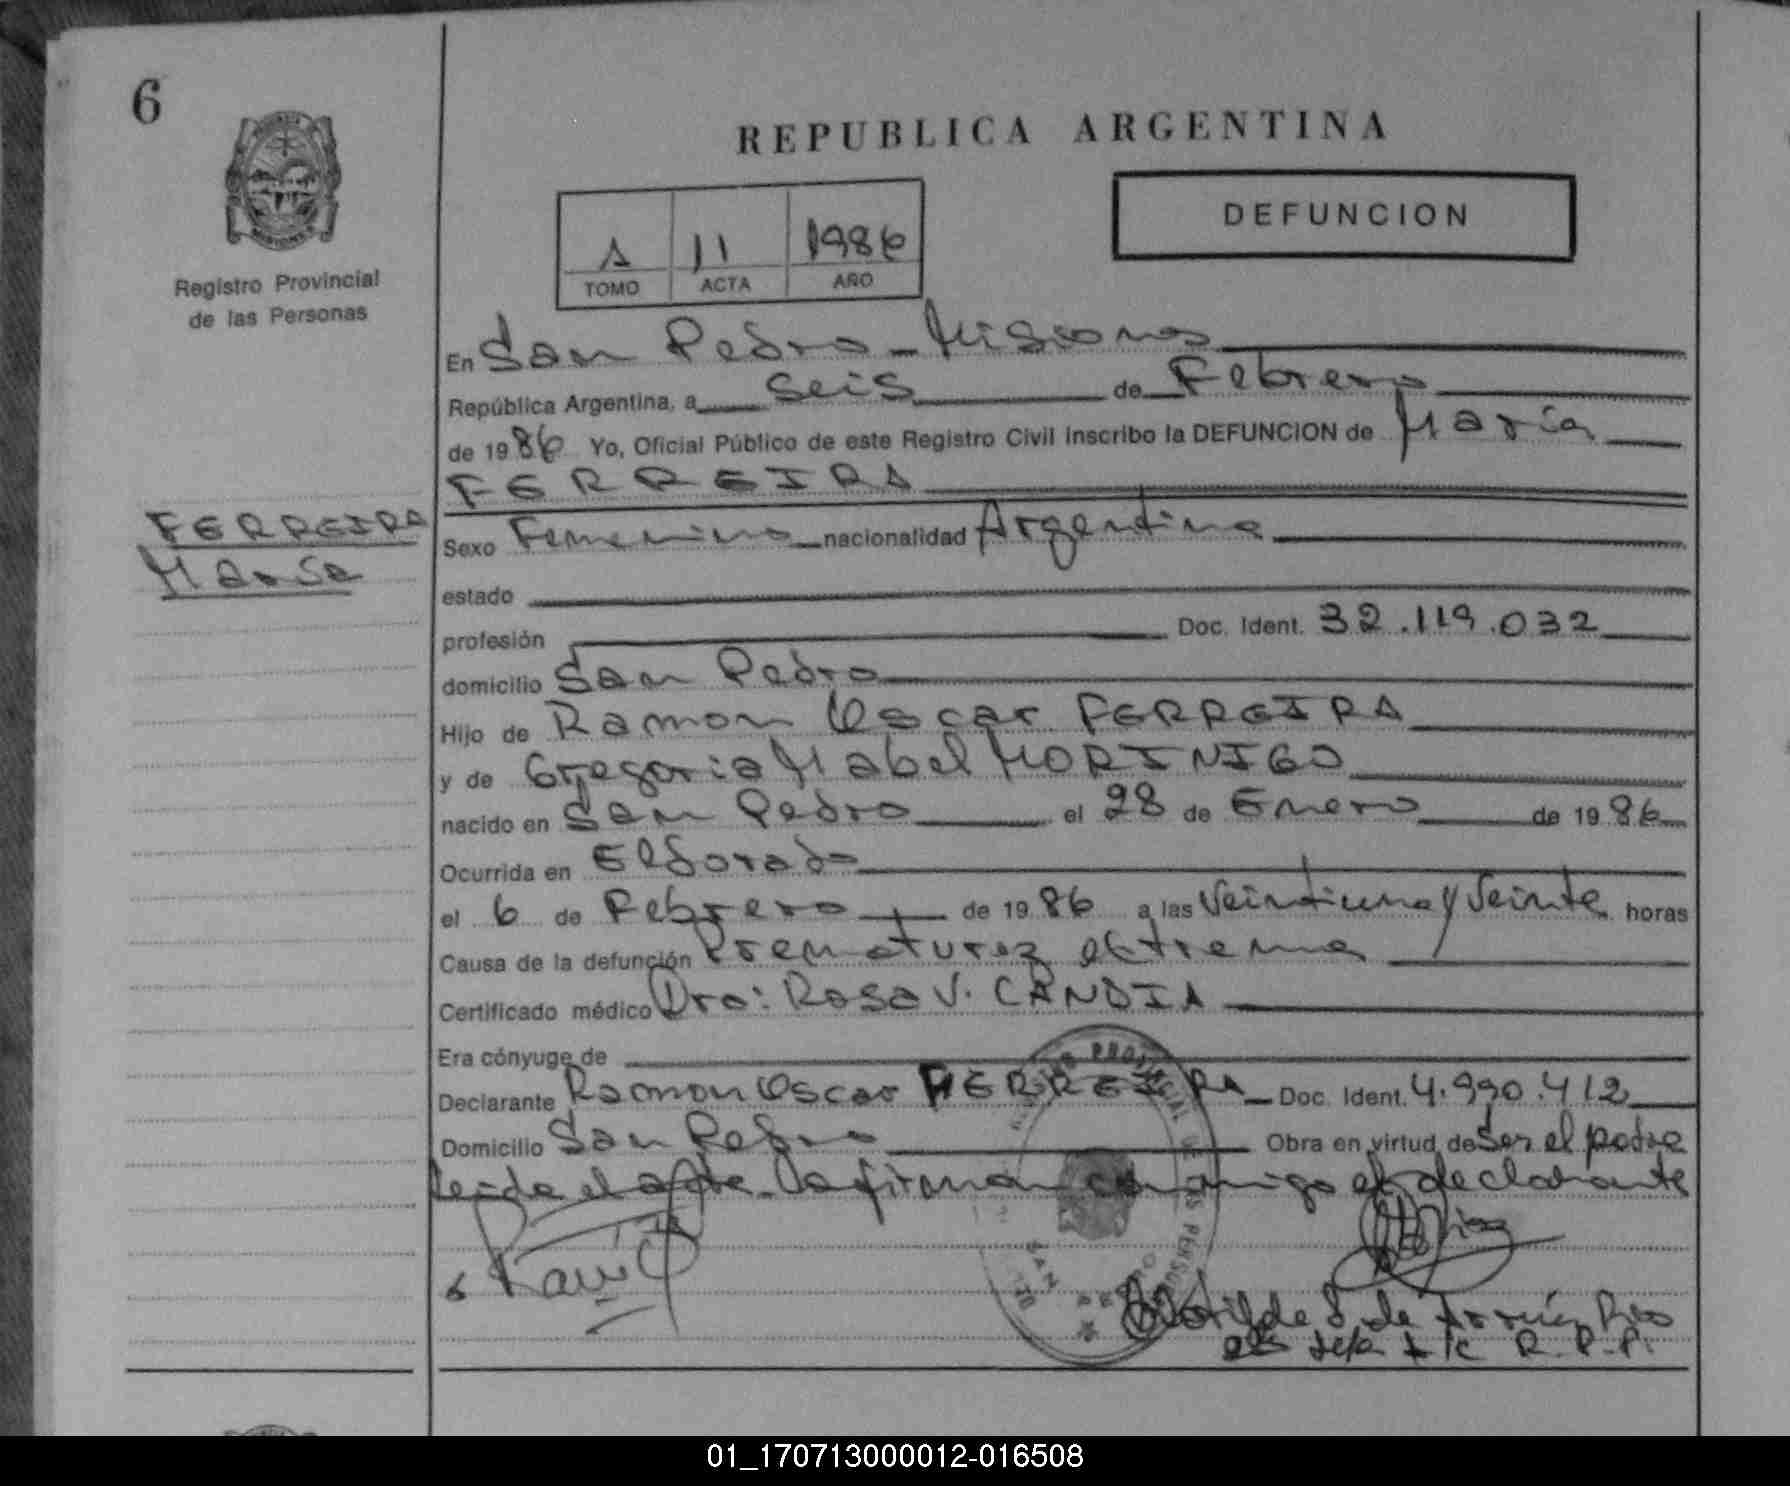 6
REPUBLICA ARGENTINA
MISIONES
Registro Provincial
de las Personas
11 1986
TOMO ACTA AÑO
DEFUNCION
En San Pedro - Misiones
República Argentina, a seis de Febrero
de 1986 Yo, Oficial Público de este Registro Civil inscribo la DEFUNCION de María
FERREIRA
FERREIRA
María
Sexo Femenino nacionalidad Argentina
estado
profesión Doc. Ident. 32.119.032
domicilio San Pedro
Hijo de Ramon Oscar FERREIRA
y de Gregoria Mabel MORINIGO
nacido en San Pedro el 28 de Enero de 1986
Ocurrida en Eldorado
el 6 de Febrero de 1986 a las Veintiuna y Veinte horas
Causa de la defunción Prematurez extrema
Certificado médico Dra: Rosa V. CANDIA
Era cónyuge de
Declarante Ramon Oscar FERREIRA Doc. Ident. 4.990.412
Domicilio San Pedro Obra en virtud de Ser el padre
Leida el acta La firman conmigo el declarante
R.P.P.
01_170713000012-016508